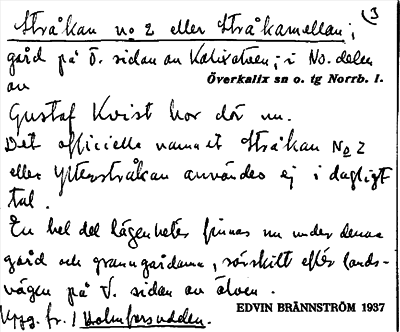 3
Stråkan No 2 eller Stråkamellan;
gård på Ö. sidan av Kalixälven; i No. delen
Överkalix sn o. tg Norrb. l.
av
Gustaf Kvist bor där nu.
Det officiella namnet Stråkan No 2
eller Ytterstråkan användes ej i dagligt
tal.
En hel del lägenheter finnas nu under denna
gård och granngårdarna, särskilt efter lands-
vägen på V. sidan av älven.
EDVIN BRÄNNSTRÖM 1937
Uppg. fr. 1 Holmforsudden.